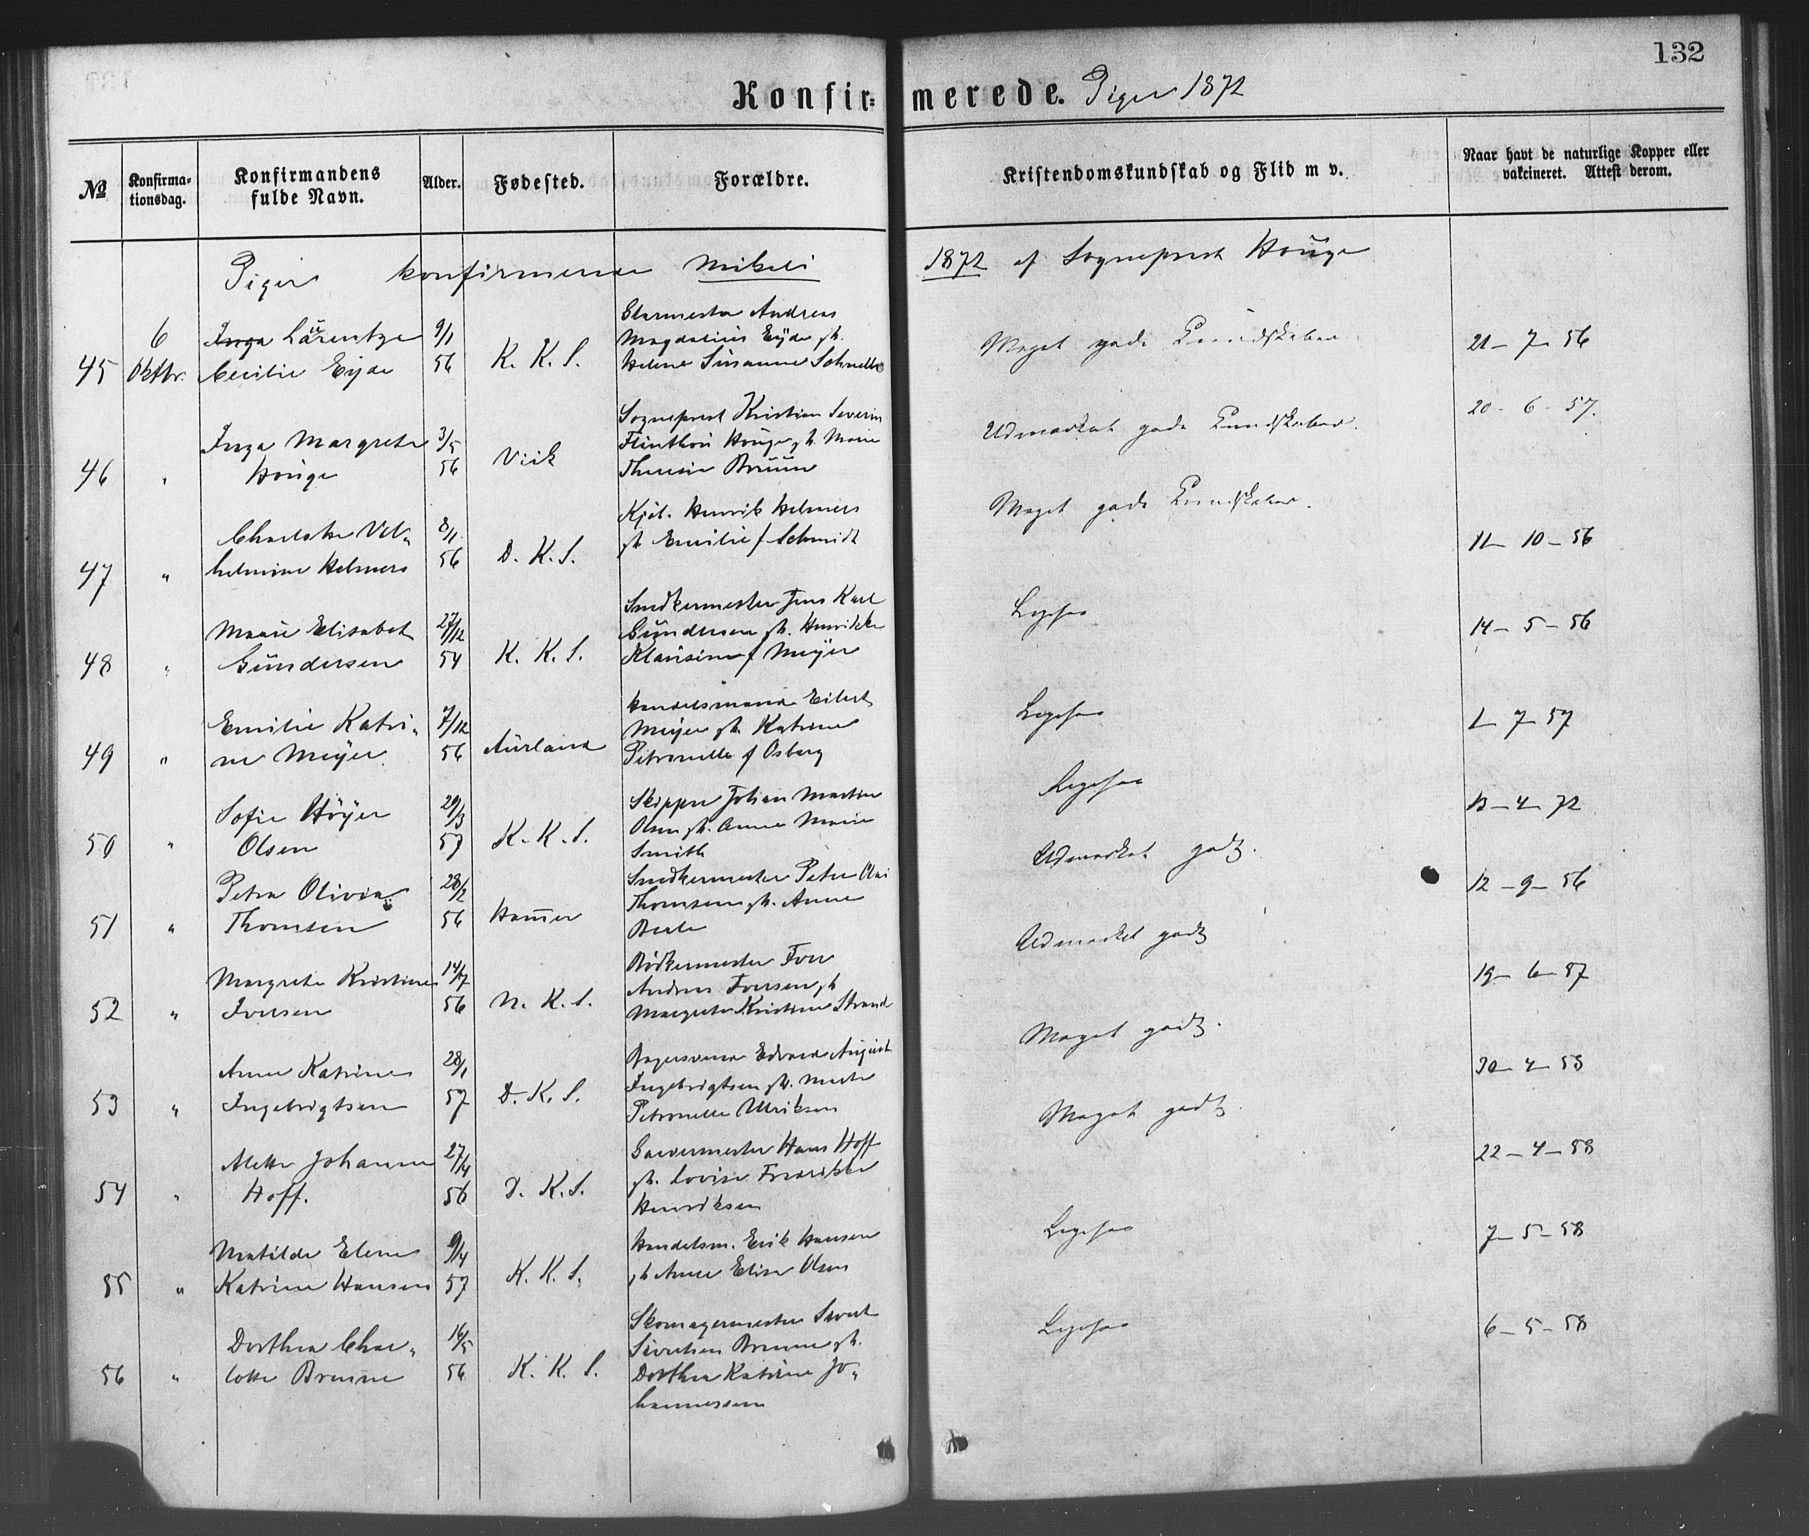 132
Konfirmerede. Piger 1872
№
Konfirma-
tionsdag.
Konfirmandens
fulde Navn.
Alder.
Fødested.
Forældre.
Kristendomskundskab og Flid m v.
Naar havt de naturlige Kopper eller
vakcineret. Attest derom.
Piger konfirmerede Mikeli 1872 af Sogneprest Houge
45 6 Oktbr. Inga Laurentze Cecilie Eyde 9/1 56 K. K. S. Glarmester Andreas Magdalius Eyde gh. Helene Susanne Schnelle Meget gode Kundskaber. 21-7-56
46 " Inga Margrete Houge 3/5 56 Viik Sogneprest Kristian Severin Flinthou Houge gh. Marie Theresie Bruun Udmærket gode Kundskaber. 20-6-57.
47 " Charlotte Vil- helmine Helmers 8/1 56 D. K. S. Kjøb. Henrik Helmers gh Emilie f Schmidt Meget gode Kundskaber. 11-10-56
48 " Marie Elisabet Gundersen 27/12 54 K. K. S. Snedkermester Jens Karl Gundersen gh. Henrikke Klausine f Meyer Ligesaa 14-5-56
49 " Emilie Katri- ne Meyer. 7/12 56 Aurland Handelsmand Eilert Meyer gh. Katrine Petronelle f Osberg Ligesaa 1-7-57
50 " Sofie Høyer Olsen 29/3 57 K. K. S. Skipper Johan Martin Olsen gh. Anne Marie Smith Ligesaa 13-4-72
51 " Petra Olivia Thomsen 28/2 56 Hammer Snedkermester Peter Olai Thomsen gh. Anne Udmærket godt. 12-9-56
52 " Margrete Kristine Iversen 14/7 56 N. K. S. Bødkermester Iver Andreas Iversen gh Margrete Kristine Strand Udmærket godt 19-6-57
53 " Anne Katrine Ingebrigtsen 28/1 57 D. K. S. Bagersvend Edvard August Ingebrigtsen gh. Marte Petronelle Ulriksen Meget godt. 30-4-58
54 " Alette Johanne Hoff. 27/4 56 D. K. S. Garvermester Hans Hoff gh. Lovise Fredrikke Henriksen Meget godt. 22-4-58
55 " Matilde Elene Katrine Hansen 9/4 57 K. K. S. Handelsm. Erik Hansen gh Anne Elise Olsen Ligesaa 7-5-58
56 " Dorthea Char- lotte Breune 16/5 56 K. K. S. Skomagermester Sivert Sivertsen Breune gh. Dorthea Katrine Jo- hannessen Ligesaa 6-5-58